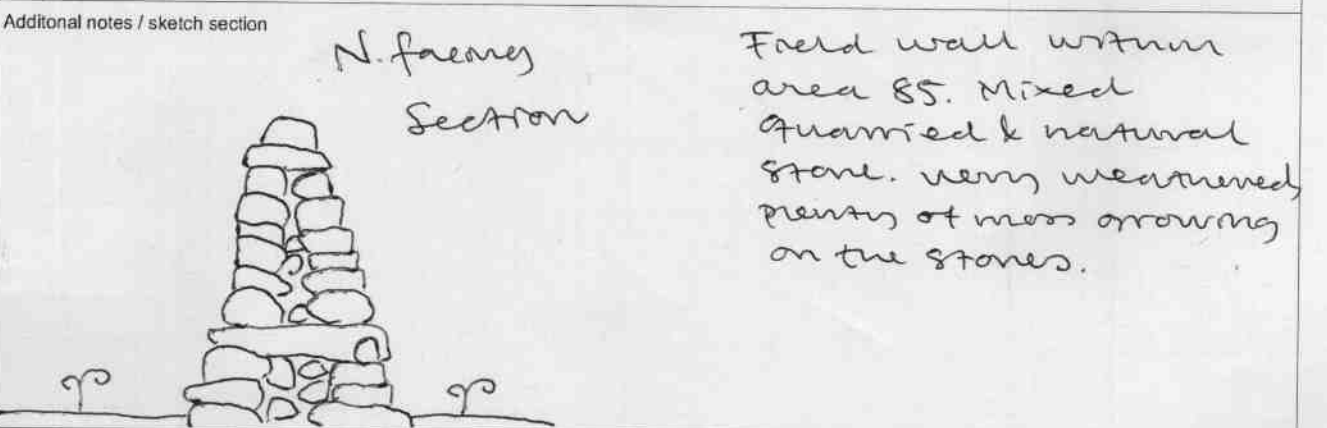 Additonal notes / sketch section
N. facing
Section
Field wall within
area 85. Mixed
quarried & natural
stone. very weathered,
plenty of moss growing
on the stones.